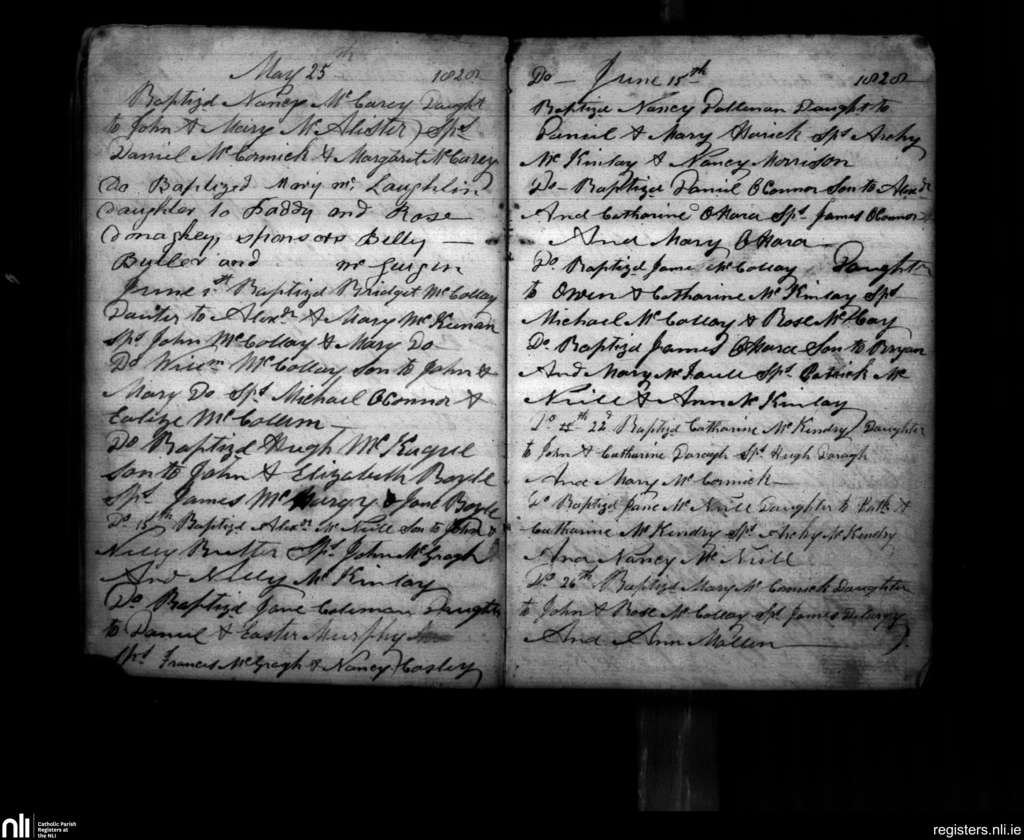 May 25th 1828
Baptizd Nancy McCarey Daught
to John & Mary McAlister) Sps
Daniel McCormick & Margaret McCarey
Do Baptized Mary mc Laughlin
Daughter to Paddy and Rose
Donaghey, sponsors Betty —
Butler and mc Guigin
June 1st Baptizd Bridget McCollay
Dauter to Alexdr & Mary McKeenan
Sps John McCollay & Mary Do
Do Willm McCollay son to John &
Mary Do Sps Michael OConnor &
McCollum —
Do Baptizd Hugh McKague
Son to John & Elizabeth Boyle
Sps James & Jane Boyle
Do 15th Baptizd Alexdr McNeill Son to John &
Nelly Butter Sps John McGragh
And Nelly McKinlay
Do Baptizd Jane Coleman Daughter
to Daniel & Easter Murphy
Sps Francis McGragh & Nancy Cosley
Do — June 15th 1828
Baptizd Nancy Dollman Daught to
Daniel & Mary Harick Sps Archy
McKinlay & Nancy Morrison
Do — Baptizd Daniel OConnor Son to Alexdr
And Catharine OHara Sps James OConnor
And Mary OHara
Do Baptizd James McCollay Daughter
to Owen & Catharine McKinlay Sps
Michael McCollay & Rose McKay
Do Baptizd James OHara Son to Bryan
And Mary McFaull Sps Patrick Mc
Neill & Ann McKinlay
Do 22d Baptizd Catharine McKindry Daughter
to John & Catharine Daragh Sps Hugh Daragh
And Mary McCormick —
Do Baptizd Jane McNeill Daughter to Patk &
Catharine McKendry Sps Archy McKendry
And Nancy McNeill
Do 26th Baptizd Mary McCormick Daughter
to John & Rose McCollay Sps James Delargy
And Ann Mallen
nli
Catholic Parish
Registers at
the NLI
registers.nli.ie